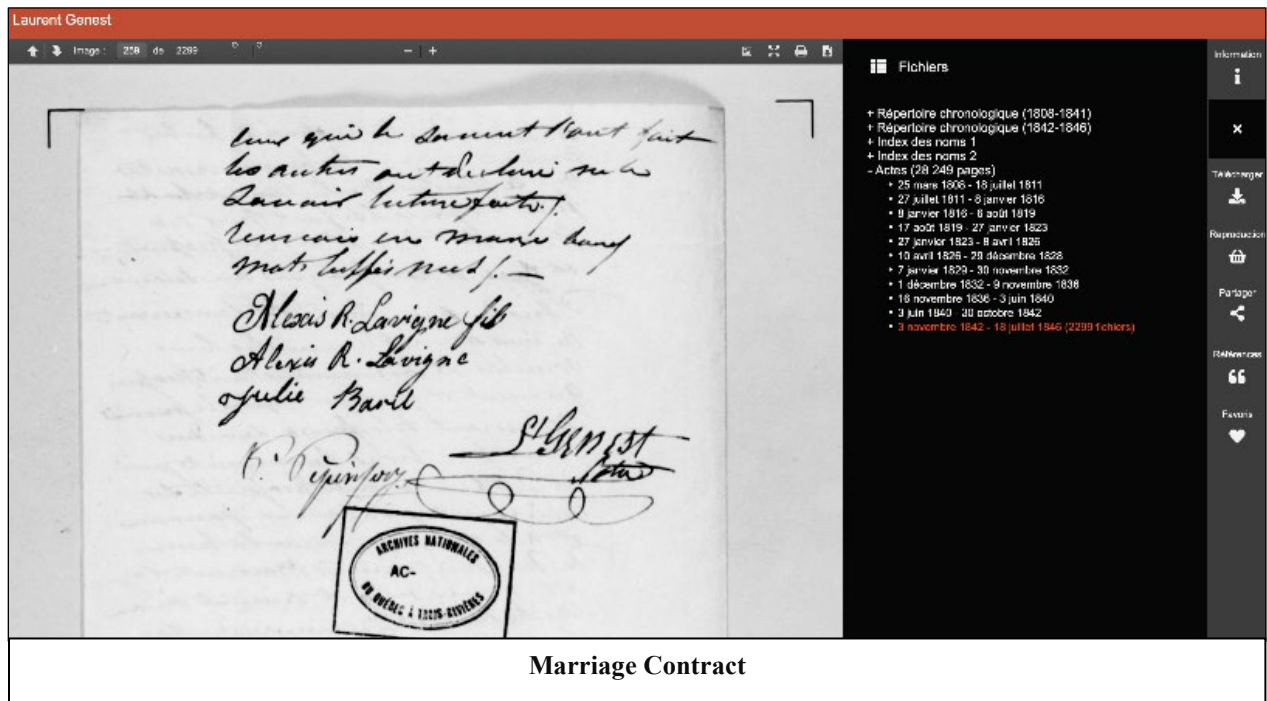 Laurent Genest
Image : 259 de 2299
− | +
ceux qui le savent l'ont fait
les autres ont déclaré ne le
savoir lecture faite /.
renvois en marge bons
mots biffés nuls /. —
Alexis R. Lavigne fils
Alexis R. Lavigne
Julie Baril
L. Genest
Notre
ARCHIVES NATIONALES
AC-
DU QUÉBEC À TROIS-RIVIÈRES
Fichiers
+ Répertoire chronologique (1808-1841)
+ Répertoire chronologique (1842-1846)
+ Index des noms 1
+ Index des noms 2
- Actes (28 249 pages)
• 25 mars 1808 - 18 juillet 1811
• 27 juillet 1811 - 8 janvier 1816
• 9 janvier 1816 - 6 août 1819
• 17 août 1819 - 27 janvier 1823
• 27 janvier 1823 - 8 avril 1826
• 10 avril 1826 - 29 décembre 1828
• 7 janvier 1829 - 30 novembre 1832
• 1 décembre 1832 - 9 novembre 1836
• 16 novembre 1836 - 3 juin 1840
• 3 juin 1840 - 30 octobre 1842
• 3 novembre 1842 - 18 juillet 1846 (2299 fichiers)
Information
Télécharger
Reproduction
Partager
Références
Favoris
Marriage Contract